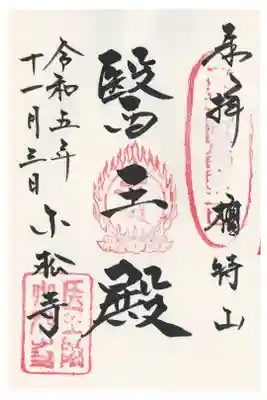 奉拝 檀特山
醫王殿
令和五年
十一月三日
小松寺